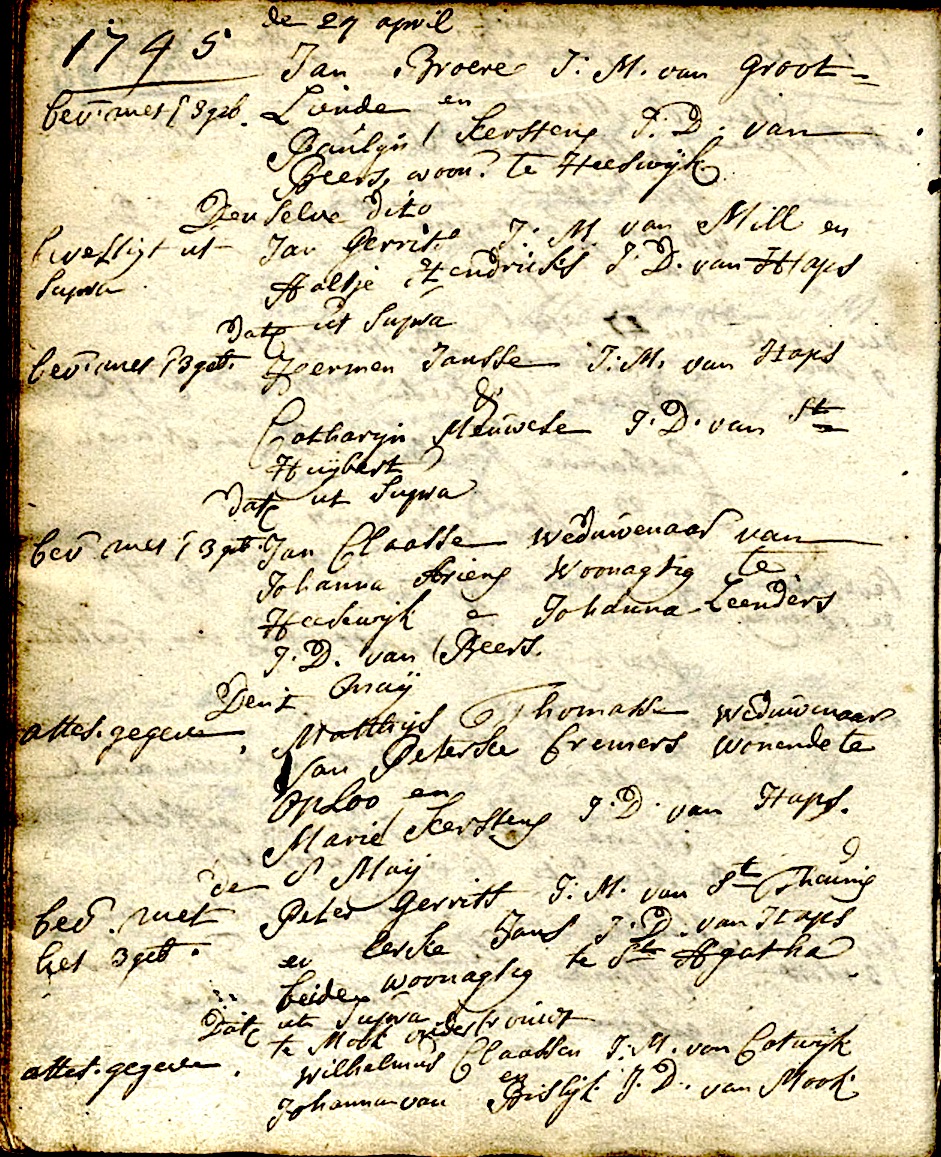 1745
de 29 april
Jan Broere J: M. van Groot=
bev: met 3 geb. Linde en
Paulyn Kerstens J: D. van
Beers, woon: te Heeswijk
Den Selve dito
bevestigt ut Jan Gerrits J: M van Mill en
Supra Aaltje Hendricks J: D. van Haps
Dat ut Supra
bev: met 3 geb. Hermen Jansse J: M. van Haps
&
Catharyn Meuwese J: D. van St
Huijbert
Dat ut Supra
bev met 3 geb Jan Claasse weduwenaar van
Johanna Ariens Woonagtig te
Heeswijk e Johanna Leenders
J. D. van Beers.
Den 1 Maij
attes. gegeven, Matthijs Thomasse weduwenaar
van Peterske Cremers wonende te
Oploo en
Marie Kerstens J: D van Haps.
de 8 Maij
bev. met Peter Gerrits J. M. van St Theunis
het 3 geb. en Jans J: D. van Haps
beide woonagtig te St Agatha
Dat ut Supra
te Mook ondertrouwt
attes. gegeven. Wilhelmus Claassen J: M. van Catwijk
en
Johanna van Bislijk J: D. van Mook